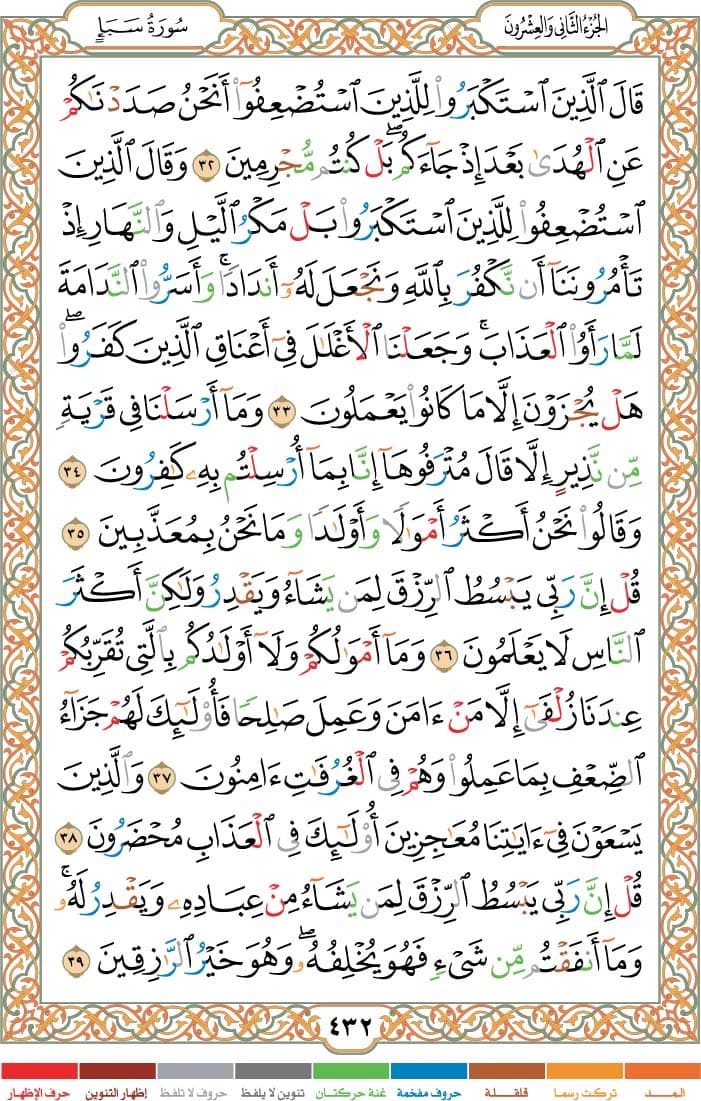 الجُزْءُ الثَّانِي وَالعِشْرُونَ
سُورَةُ سَبَإٍ
قَالَ ٱلَّذِينَ ٱسْتَكْبَرُوا۟ لِلَّذِينَ ٱسْتُضْعِفُوٓا۟ أَنَحْنُ صَدَدْنَٰكُمْ
عَنِ ٱلْهُدَىٰ بَعْدَ إِذْ جَآءَكُم ۖ بَلْ كُنتُم مُّجْرِمِينَ ٣٢ وَقَالَ ٱلَّذِينَ
ٱسْتُضْعِفُوا۟ لِلَّذِينَ ٱسْتَكْبَرُوا۟ بَلْ مَكْرُ ٱلَّيْلِ وَٱلنَّهَارِ إِذْ
تَأْمُرُونَنَآ أَن نَّكْفُرَ بِٱللَّهِ وَنَجْعَلَ لَهُۥٓ أَندَادًا ۚ وَأَسَرُّوا۟ ٱلنَّدَامَةَ
لَمَّا رَأَوُا۟ ٱلْعَذَابَ ۚ وَجَعَلْنَا ٱلْأَغْلَٰلَ فِىٓ أَعْنَاقِ ٱلَّذِينَ كَفَرُوا۟ ۖ
هَلْ يُجْزَوْنَ إِلَّا مَا كَانُوا۟ يَعْمَلُونَ ٣٣ وَمَآ أَرْسَلْنَا فِى قَرْيَةٍ
مِّن نَّذِيرٍ إِلَّا قَالَ مُتْرَفُوهَآ إِنَّا بِمَآ أُرْسِلْتُم بِهِۦ كَٰفِرُونَ ٣٤
وَقَالُوا۟ نَحْنُ أَكْثَرُ أَمْوَٰلًا وَأَوْلَٰدًا وَمَا نَحْنُ بِمُعَذَّبِينَ ٣٥
قُلْ إِنَّ رَبِّى يَبْسُطُ ٱلرِّزْقَ لِمَن يَشَآءُ وَيَقْدِرُ وَلَٰكِنَّ أَكْثَرَ
ٱلنَّاسِ لَا يَعْلَمُونَ ٣٦ وَمَآ أَمْوَٰلُكُمْ وَلَآ أَوْلَٰدُكُم بِٱلَّتِى تُقَرِّبُكُمْ
عِندَنَا زُلْفَىٰٓ إِلَّا مَنْ ءَامَنَ وَعَمِلَ صَٰلِحًا فَأُو۟لَٰٓئِكَ لَهُمْ جَزَآءُ
ٱلضِّعْفِ بِمَا عَمِلُوا۟ وَهُمْ فِى ٱلْغُرُفَٰتِ ءَامِنُونَ ٣٧ وَٱلَّذِينَ
يَسْعَوْنَ فِىٓ ءَايَٰتِنَا مُعَٰجِزِينَ أُو۟لَٰٓئِكَ فِى ٱلْعَذَابِ مُحْضَرُونَ ٣٨
قُلْ إِنَّ رَبِّى يَبْسُطُ ٱلرِّزْقَ لِمَن يَشَآءُ مِنْ عِبَادِهِۦ وَيَقْدِرُ لَهُۥ ۚ
وَمَآ أَنفَقْتُم مِّن شَىْءٍ فَهُوَ يُخْلِفُهُۥ ۖ وَهُوَ خَيْرُ ٱلرَّٰزِقِينَ ٣٩
٤٣٢
المـــد تركت رسما قلقلة حروف مفخمة غنة حركتان تنوين لا يلفظ حروف لا تلفظ إظهار التنوين حرف الإظهار